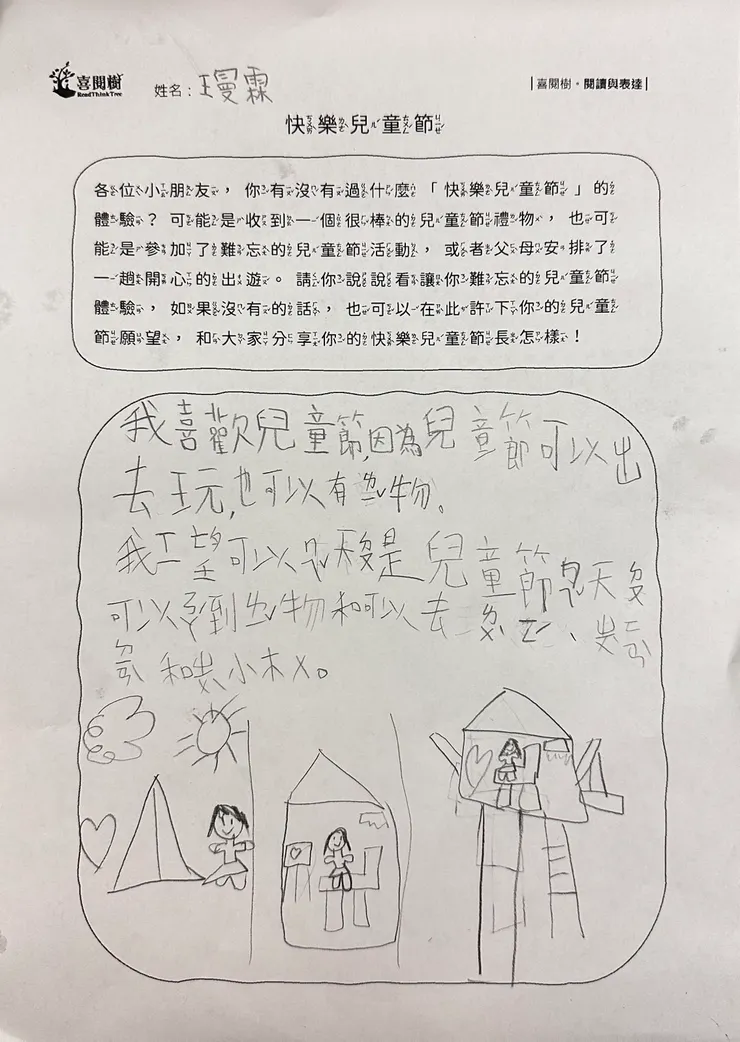 喜閱樹
ReadThinkTree
姓名：瑅霖
|喜閱樹・閱讀與表達|
快樂兒童節
各位小朋友，你有沒有過什麼「快樂兒童節」的
體驗？可能是收到一個很棒的兒童節禮物，也可
能是參加了難忘的兒童節活動，或者父母安排了
一趟開心的出遊。請你說說看讓你難忘的兒童節
體驗，如果沒有的話，也可以在此許下你的兒童
節願望，和大家分享你的快樂兒童節長怎樣！
我喜歡兒童節,因為兒童節可以出
去玩,也可以有ㄌㄧˇ物。
我ㄒㄧ望可以ㄅㄨˋ是兒童節ㄋㄚˋ天
可以到ㄌㄧˇ物和可以去
和小木ㄨ。